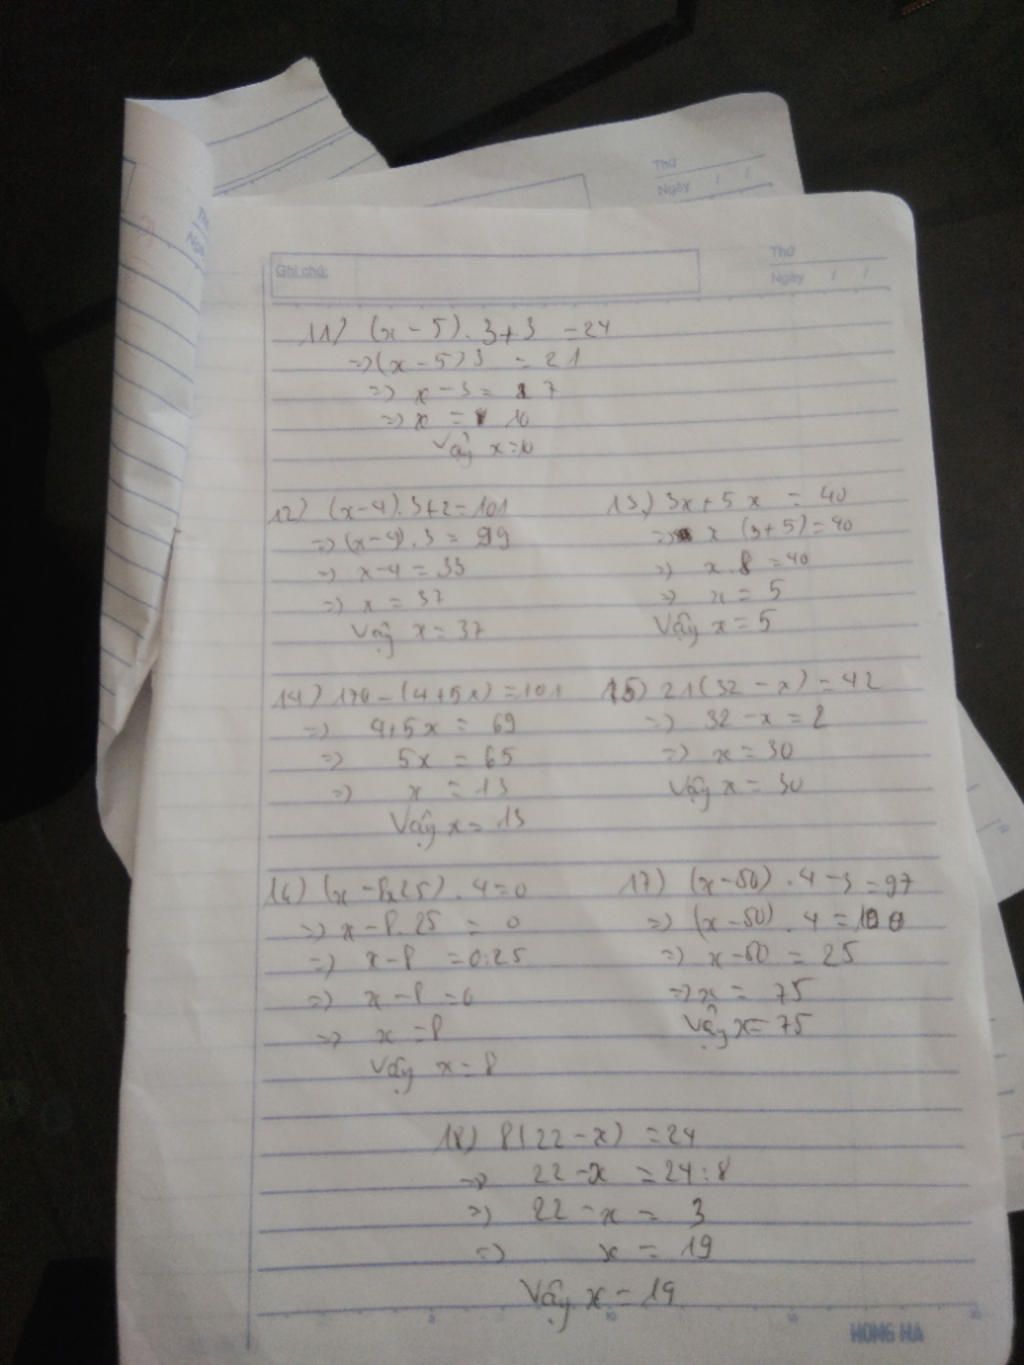 Thứ
Ngày / /
Ghi chú:
Thứ
Ngày / /
11) (x - 5) . 3 + 3 = 24
=> (x - 5) 3 = 21
=> x - 3 = 7
=> x = 10
Vậy x = 10
12) (x-4) . 3+2 = 101
=> (x-4) . 3 = 99
=> x-4 = 33
=> x = 37
Vậy x = 37
13) 3x + 5x = 40
=> x (3+5) = 40
=> x . 8 = 40
=> x = 5
Vậy x = 5
14) 170 - (4+5x) = 101
=> 4+5x = 69
=> 5x = 65
=> x = 13
Vậy x = 13
15) 21(32 - x) = 42
=> 32 - x = 2
=> x = 30
Vậy x = 30
16) (x - 8.25) . 4 = 0
=> x - 8.25 = 0
=> x - 8 = 0:25
=> x - 8 = 0
=> x = 8
Vậy x = 8
17) (x-50) . 4 - 3 = 97
=> (x-50) . 4 = 100
=> x-50 = 25
=> x = 75
Vậy x = 75
18) 8(22 - x) = 24
=> 22 - x = 24:8
=> 22 - x = 3
=> x = 19
Vậy x = 19
HONG HA